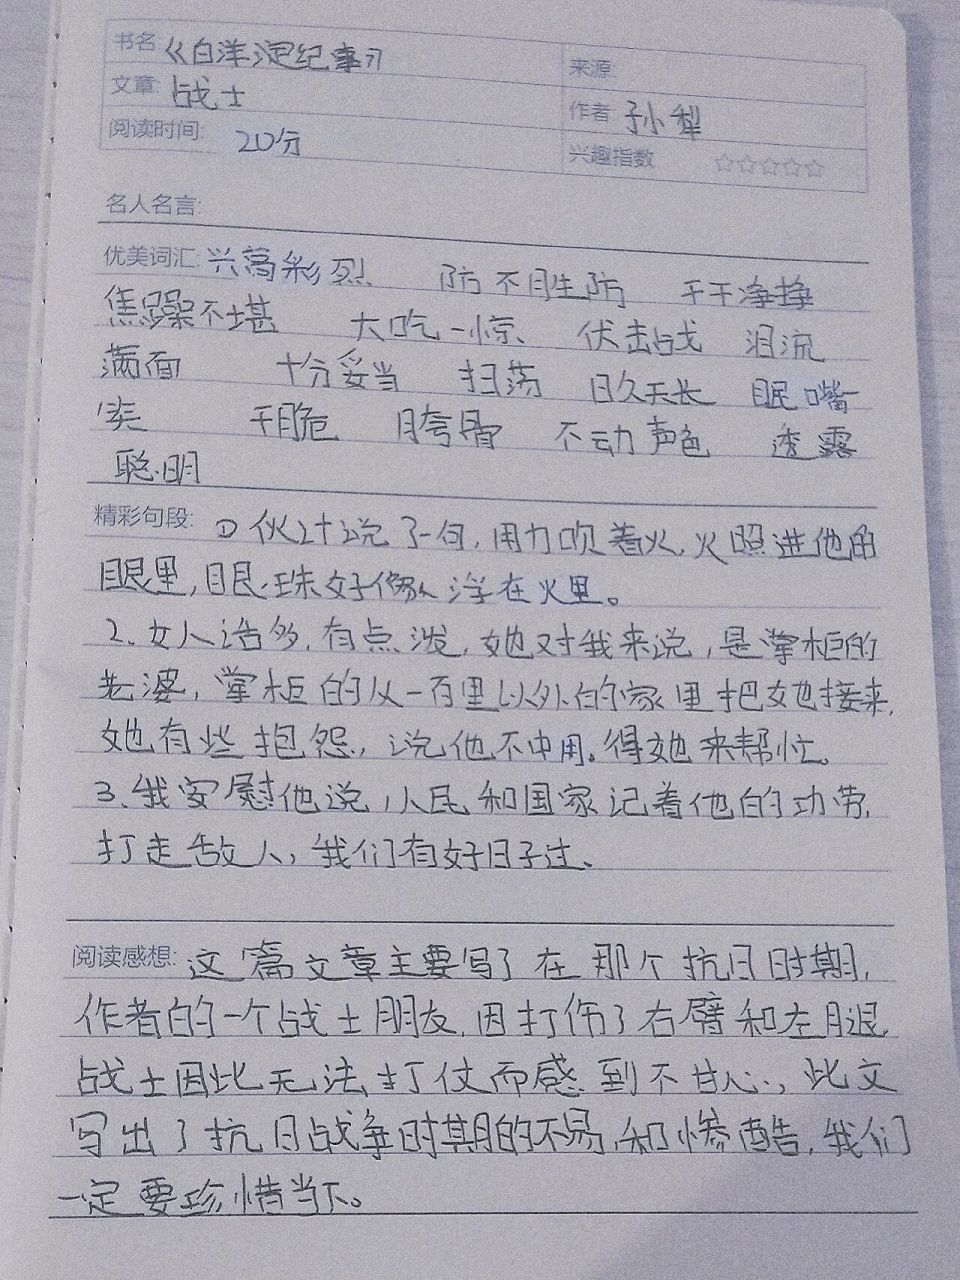 书名: 《白洋淀纪事》
来源:
文章: 战士
作者: 孙犁
阅读时间: 20分
兴趣指数 ☆☆☆☆☆
名人名言:
优美词汇: 兴高彩烈 防不胜防 干干净净
焦躁不堪 大吃一惊 伏击战 泪流
满面 十分妥当 扫荡 日久天长 眠嘴
笑 干脆 胯骨 不动声色 透露
聪明
精彩句段: ① 伙计说了一句,用力吹着火,火照进他的
眼里,眼珠好像浮在火里。
2、女人话多,有点泼,她对我来说,是掌柜的
老婆,掌柜的从一百里以外的家里把她接来,
她有些抱怨,说他不中用。得她来帮忙。
3、我安慰他说,人民和国家记着他的功劳,
打走敌人,我们有好日子过、
阅读感想: 这篇文章主要写了在那个抗日时期,
作者的一个战士朋友,因打伤了右臂和左腿,
战士因此无法打仗而感到不甘心,此文
写出了抗日战争时期的不易,和惨酷,我们
一定要珍惜当下。